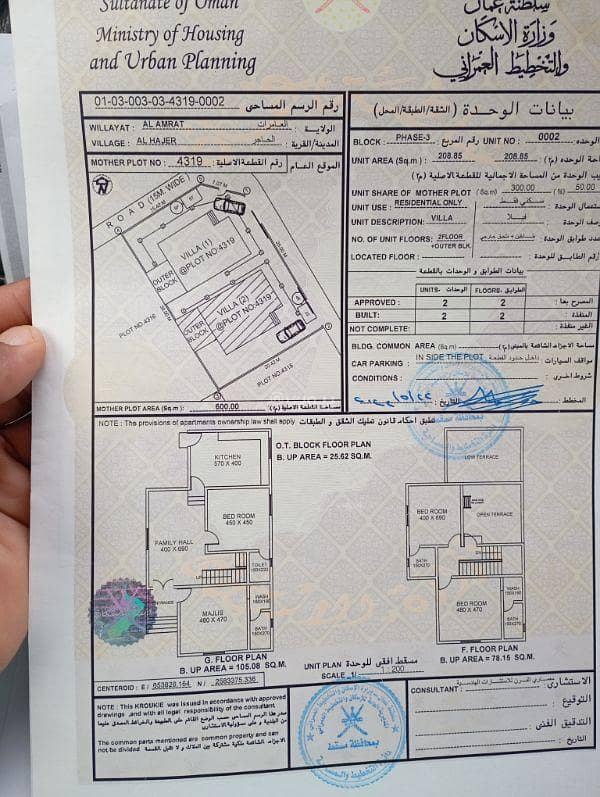 Sultanate of Oman
Ministry of Housing
and Urban Planning
سلطنة عمان
وزارة الإسكان
والتخطيط العمراني
01-03-003-03-4319-0002 رقم الرسم المساحي
WILLAYAT : AL AMRAT العامرات الولاية :
VILLAGE : AL HAJER الحاجر المدينة/القرية :
MOTHER PLOT NO : 4319 رقم القطعة الاصلية : الموقع العام
ROAD (15M. WIDE)
VILLA (1)
@PLOT NO:4319
OUTER BLOCK
VILLA (2)
@PLOT NO:4319
OUTER BLOCK
PLOT NO:4316
PLOT NO:4318
MOTHER PLOT AREA (Sq.m) : 600.00 مساحة القطعة الاصلية (م٢):
بيانات الوحدة (الشقة/الطبقة/المحل)
BLOCK : PHASE-3 رقم المربع : UNIT NO : 0002 الوحدة:
UNIT AREA (Sq.m) : 208.85 208.85
UNIT SHARE OF MOTHER PLOT (Sq.m) 300.00 (%) 50.00
UNIT USE : RESIDENTIAL ONLY سكني فقط
UNIT DESCRIPTION: VILLA فيلا
NO. OF UNIT FLOORS: 2FLOOR +OUTER BLK.
LOCATED FLOOR :
بيانات الطوابق و الوحدات بالقطعة
UNITS- الوحدات FLOORS- الطوابق
APPROVED : 2 2 المصرح بها :
BUILT: 2 2 المنفذة :
NOT COMPLETE: الغير منفذة :
BLDG. COMMON AREA (Sq.m)
CAR PARKING : IN SIDE THE PLOT داخل حدود القطعة مواقف السيارات :
CONDITIONS : شروط اخرى :
المخطط : التاريخ :
NOTE : The provisions of apartments ownership law shall apply. تطبق احكام قانون تمليك الشقق و الطبقات
KITCHEN
570 X 400
O.T. BLOCK FLOOR PLAN
B. UP AREA = 25.62 SQ.M.
BED ROOM
450 X 450
FAMILY HALL
400 X 690
TOILET
UP
WASH
BATH
MAJLIS
460 X 470
G. FLOOR PLAN
B. UP AREA = 105.08 SQ.M.
LOW TERRACE
BED ROOM
400 X 690
OPEN TERRACE
BATH
WASH
BATH
BED ROOM
460 X 470
F. FLOOR PLAN
B. UP AREA = 78.15 SQ.M.
UNIT PLAN مسقط افقي للوحدة
SCALE 1 : 200
CENTEROID : E / 653820.164 N / 2583075.336
NOTE : This KROUKIE was issued in accordance with approved drawings ,and with all legal responsibility of the consultant.
The common parts mentioned are common property and can not be divided
CONSULTANT : الاستشاري :
التوقيع :
التدقيق الفنى :
التاريخ :